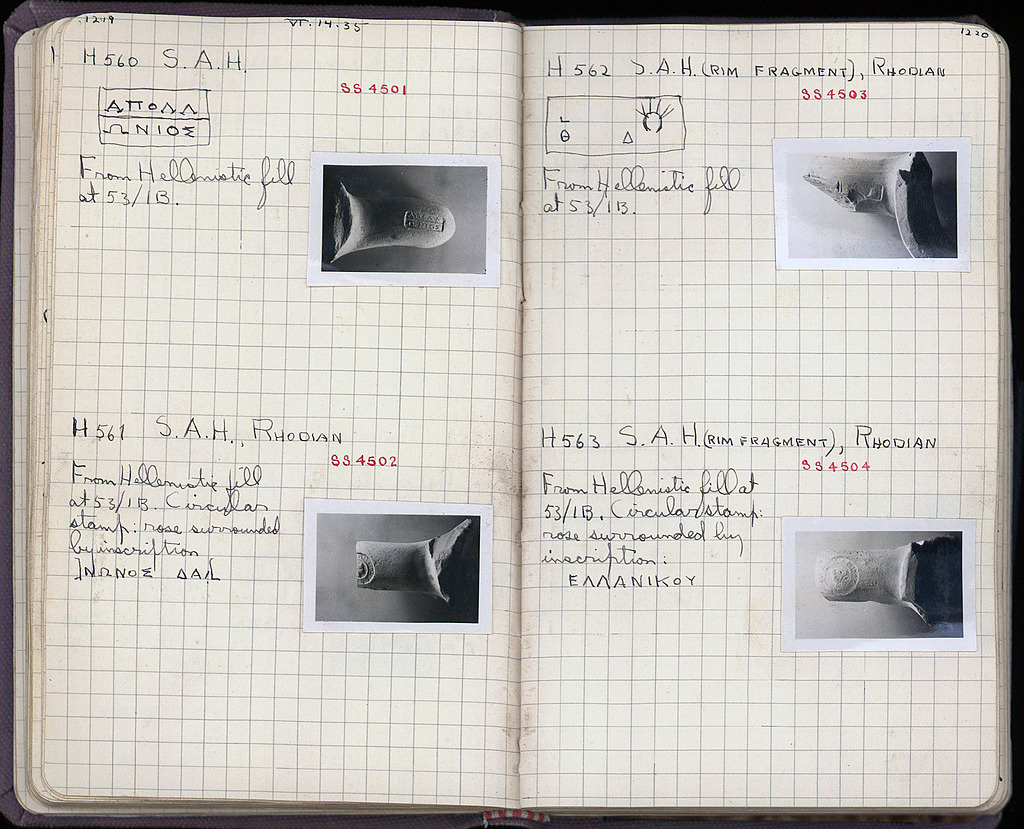 1219
VI.14.35
H 560 S.A.H.
SS 4501
ΑΠΟΛΛ
ΩΝΙΟΣ
From Hellenistic fill
at 53/ΙΒ.
H 561 S.A.H., RHODIAN
SS 4502
From Hellenistic fill
at 53/ΙΒ. Circular
stamp: rose surrounded
by inscription
]ΝΩΝΟΣ ΔΑΛ[
1220
H 562 S.A.H. (RIM FRAGMENT), RHODIAN
SS 4503
Θ Δ
From Hellenistic fill
at 53/ΙΒ.
H 563 S.A.H. (RIM FRAGMENT), RHODIAN
SS 4504
From Hellenistic fill at
53/ΙΒ. Circular stamp:
rose surrounded by
inscription:
ΕΛΛΑΝΙΚΟΥ